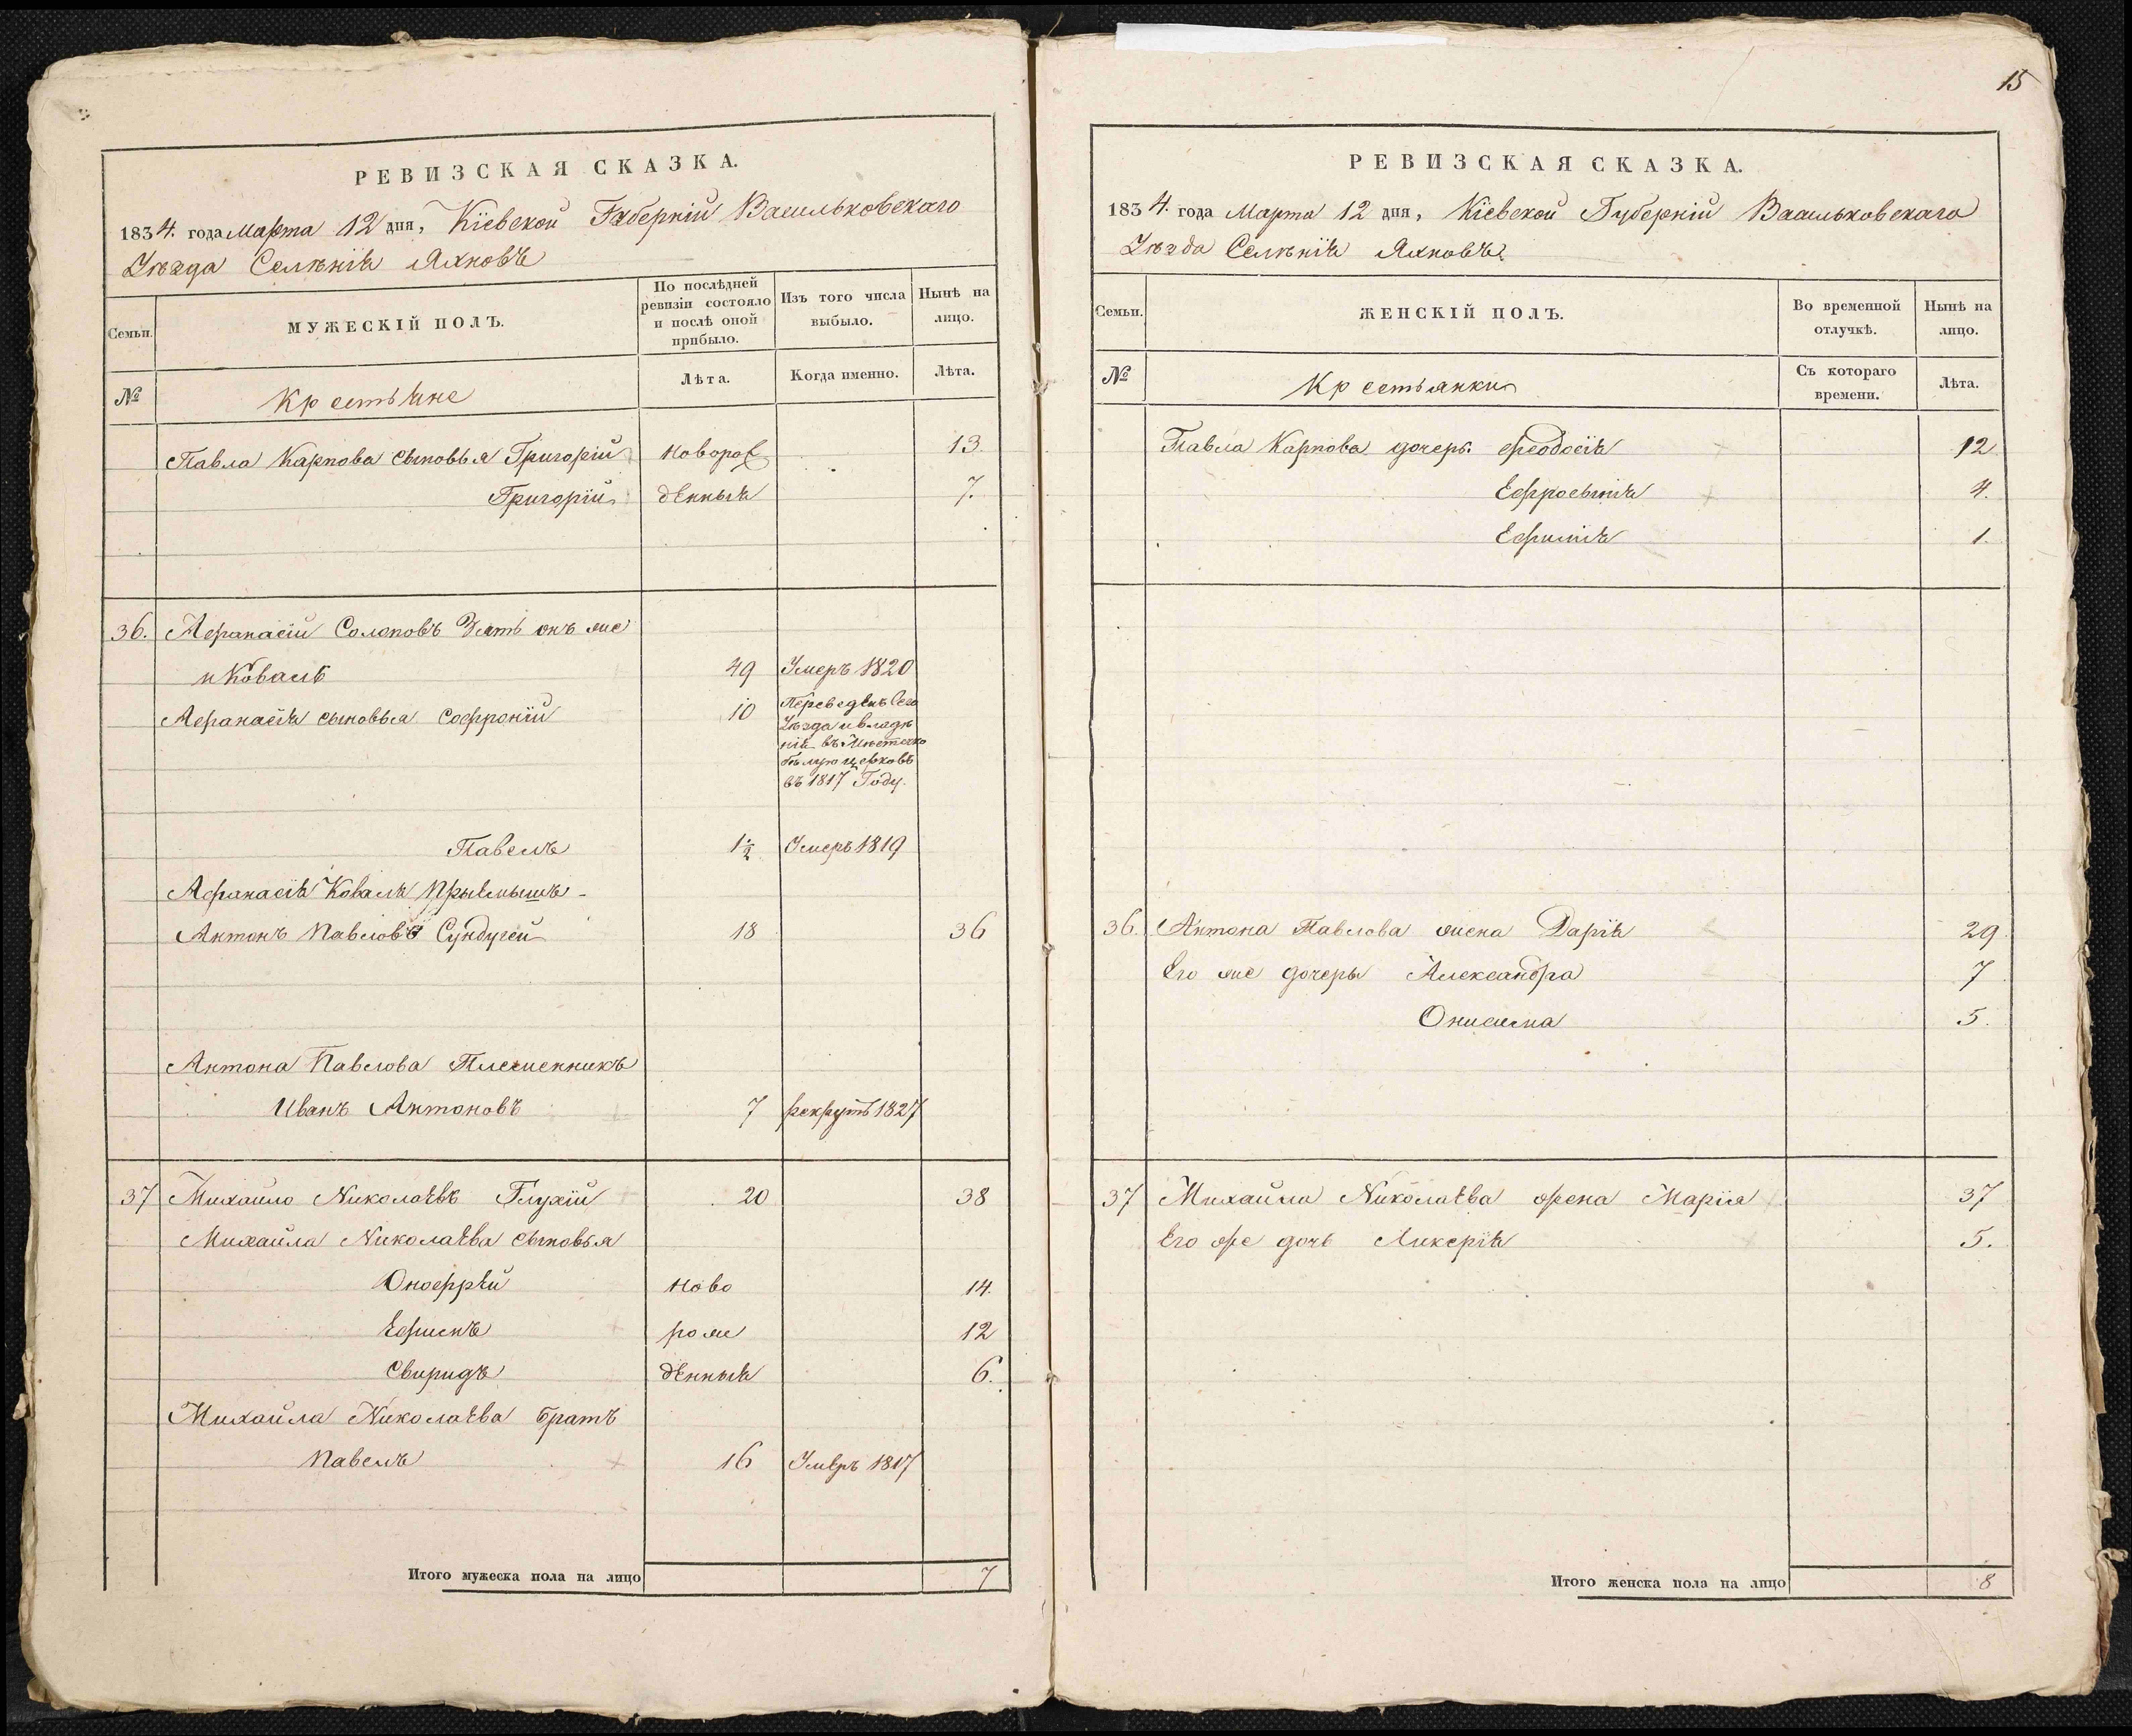 15
РЕВИЗСКАЯ СКАЗКА.
1834. года Марта 12 дня, Кіевской Губерніи Васильковскаго
Уѣзда Селѣнія Яхновъ
Семьи.
МУЖЕСКІЙ ПОЛЪ.
По послѣдней ревизіи состояло и послѣ оной прибыло.
Изъ того числа выбыло.
Нынѣ на лицо.
№
Крестьяне
Лѣта.
Когда именно.
Лѣта.
Павла Карпова сыновья Григорій Новорож 13.
Григорій дЕнныя 7.
36. Афанасій Солоповъ Зять онъ же
и Коваль 49 Умеръ 1820
Афанасія сыновья Софроній 10 Переведенъ Сего
Уѣзда и владѣ
нія въ Мѣстечко
бѣлую церковь
въ 1817 Году.
Павелъ 1½ Умеръ 1819
Афанасія Коваля
Антонъ Павловъ 18 36
Антона Павлова Племенникъ
Иванъ Антоновъ 7 рекрутъ 1827
37 Михайло Николаевъ Глухій 20 38
Михайла Николаева сыновья
Оноффрей Ново 14.
Ефимъ рож 12
Свиридъ дЕнныя 6.
Михайла Николаева братъ
Павелъ 16 Умеръ 1817
Итого мужеска пола на лицо 7
РЕВИЗСКАЯ СКАЗКА.
1834. года Марта 12 дня, Кіевской Губерніи Васильковскаго
Уѣзда Селѣнія Яхновъ
Семьи.
ЖЕНСКІЙ ПОЛЪ.
Во временной отлучкѣ.
Нынѣ на лицо.
№
Крестьянки
Съ котораго времени.
Лѣта.
Павла Карпова дочерь Феодосія 12
Ефросинія 4.
Ефимія 1.
36. Антона Павлова жена Дарія 29
Его же дочеры Александра 7
Онисима 5.
37 Михайла Николаева жена Марія 37
Его же дочь Ликерія 5.
Итого женска пола на лицо 8